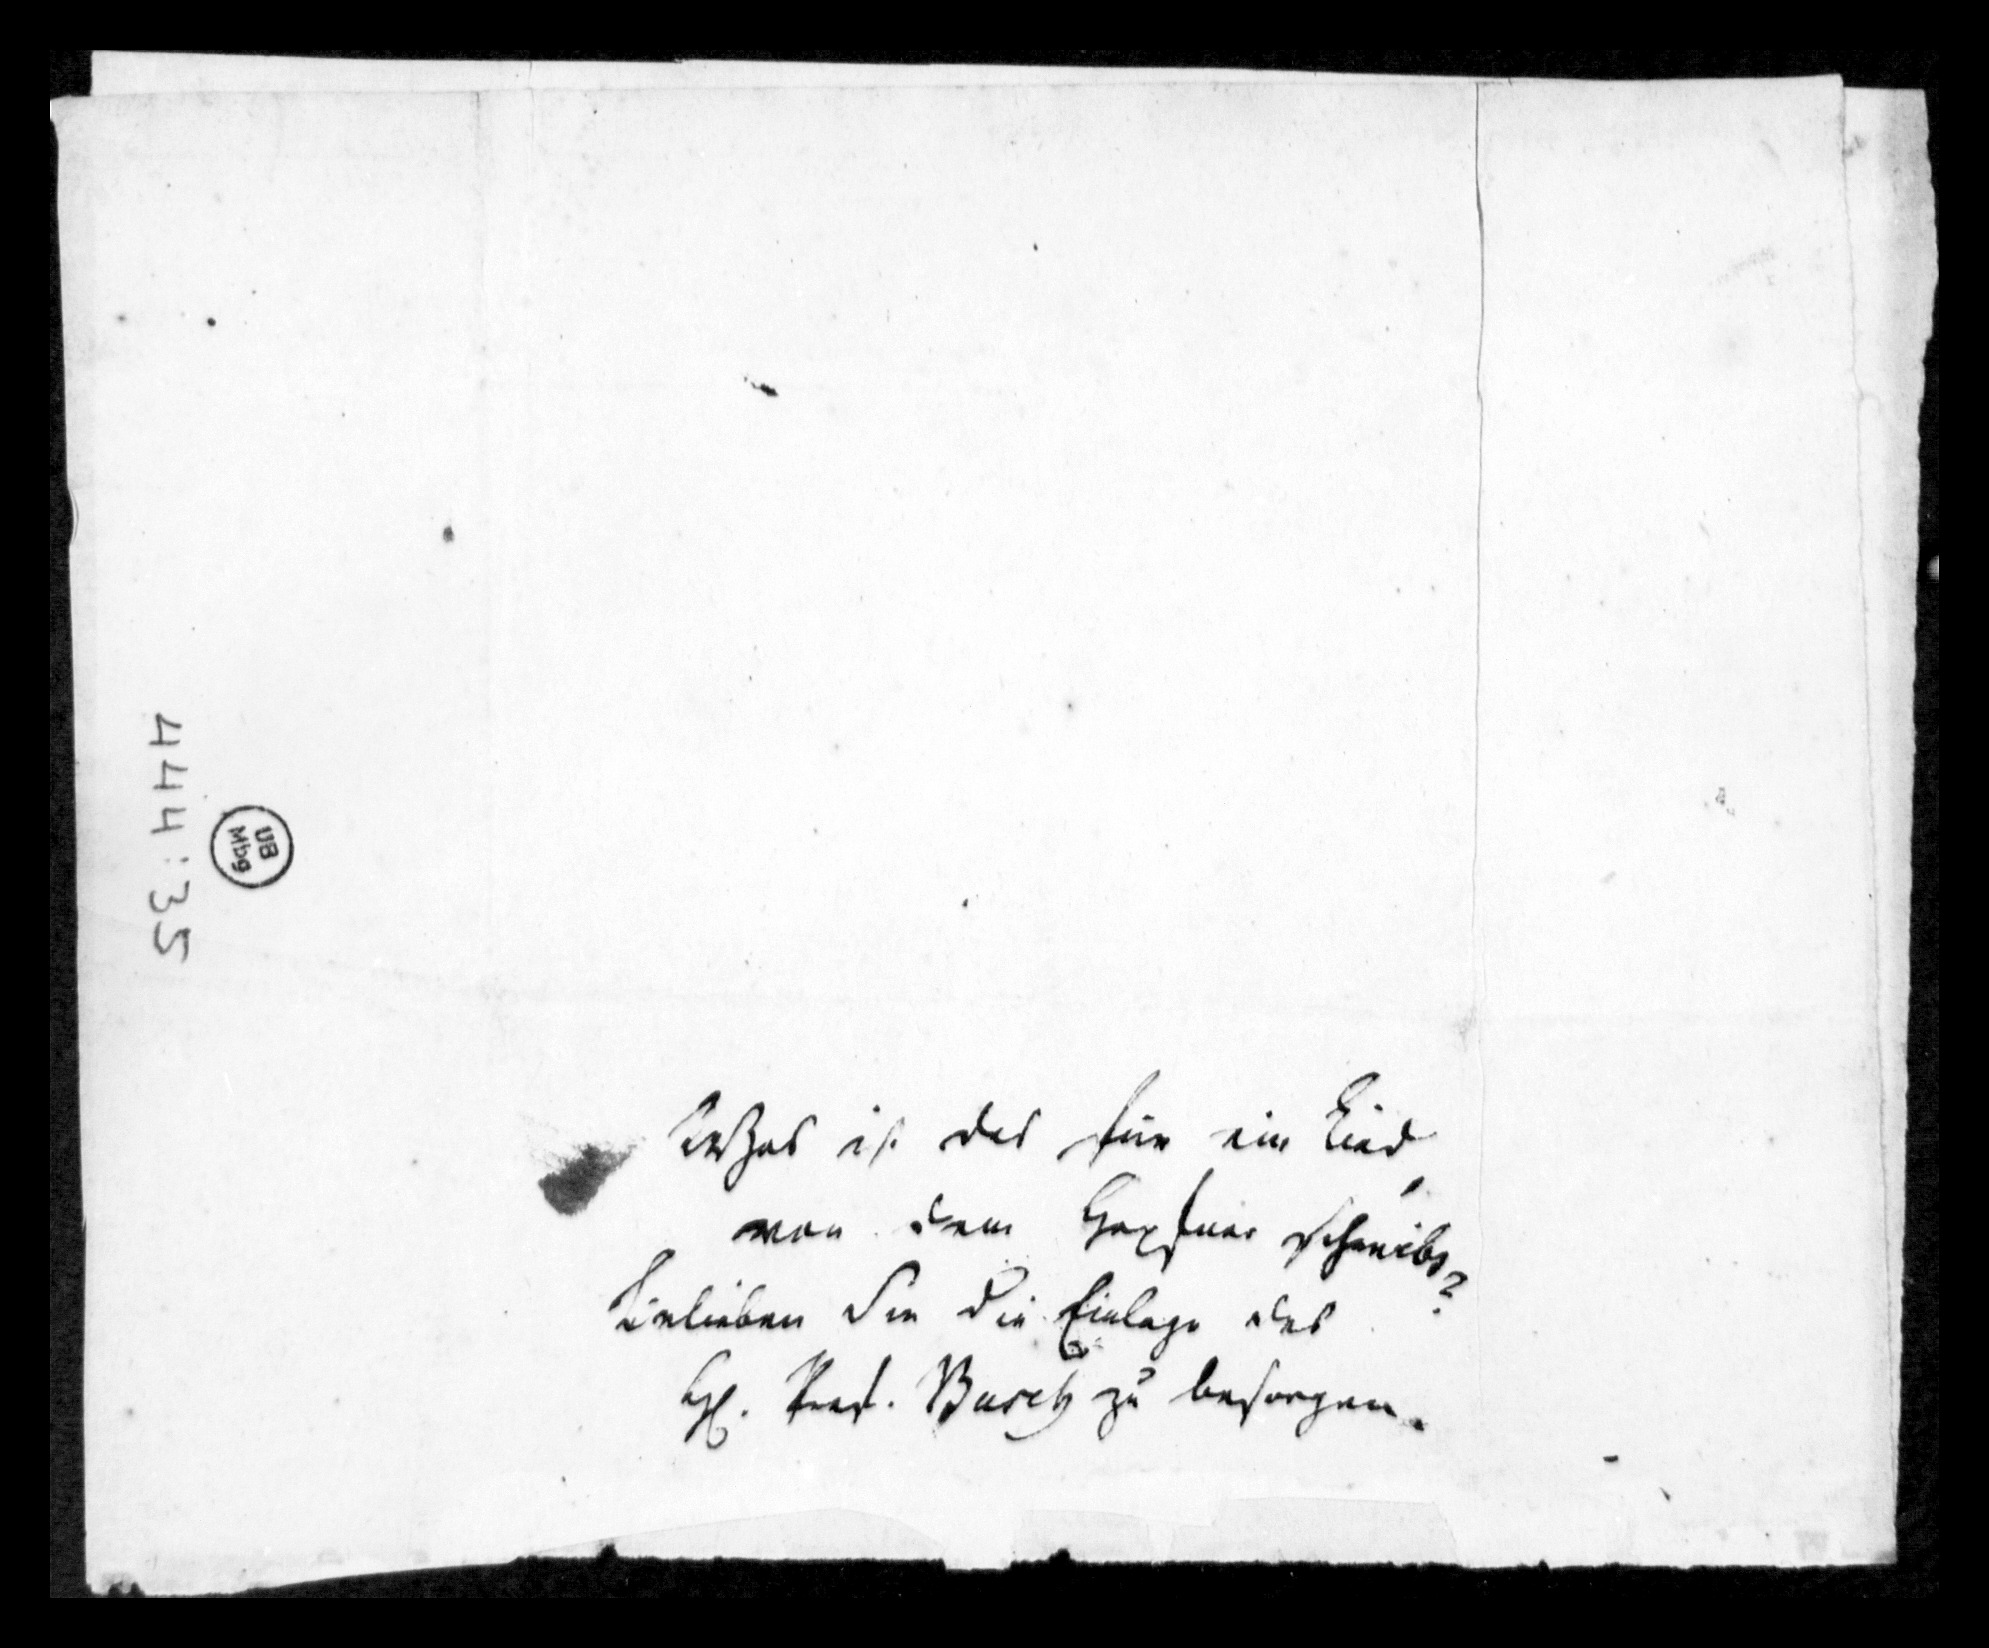 Was ist das für ein Lied
von dem Hapfner schreibt?
Belieben Sie die Einlage des
H. Prof. Busch zu besorgen.
444:35
UB
Mbg